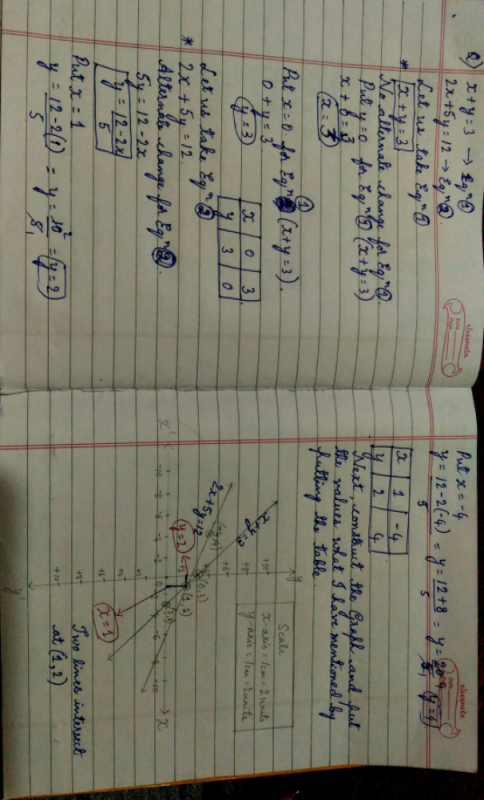 Q) x+y=3 → Eqⁿ ①
2x+5y=12 → Eqⁿ ②
Let us take Eqⁿ ①
* x+y=3
No alternate change for Eqⁿ ①
Put y=0 for Eqⁿ ① (x+y=3)
x+0=3
x=3
Put x=0 for Eqⁿ ① (x+y=3).
0+y=3
y=3
x 0 3
y 3 0
Let us take Eqⁿ ②
* 2x+5y=12.
Alternate change for Eqⁿ ②.
5y=12-2x
y=12-2x
5
Put x=1
y=12-2(1) = y=10² = y=2
5 5₁
classmate
Date
Page
Put x=-4
y=12-2(-4) = y=12+8 = y=20⁴ y=4
5 5 5₁
x 1 -4
y 2 4
Next, construct the Graph and put
the values what I have mentioned by
putting the table.
Scale
x-axis=1cm=2units
y-axis=1cm=2units
y
2x+5y=12
(-4,4)
(0,3)
(1,2)
(3,0)
y=2
x=1
x'
x
y'
Two lines intersect
at (1,2)
classmate
Date
Page